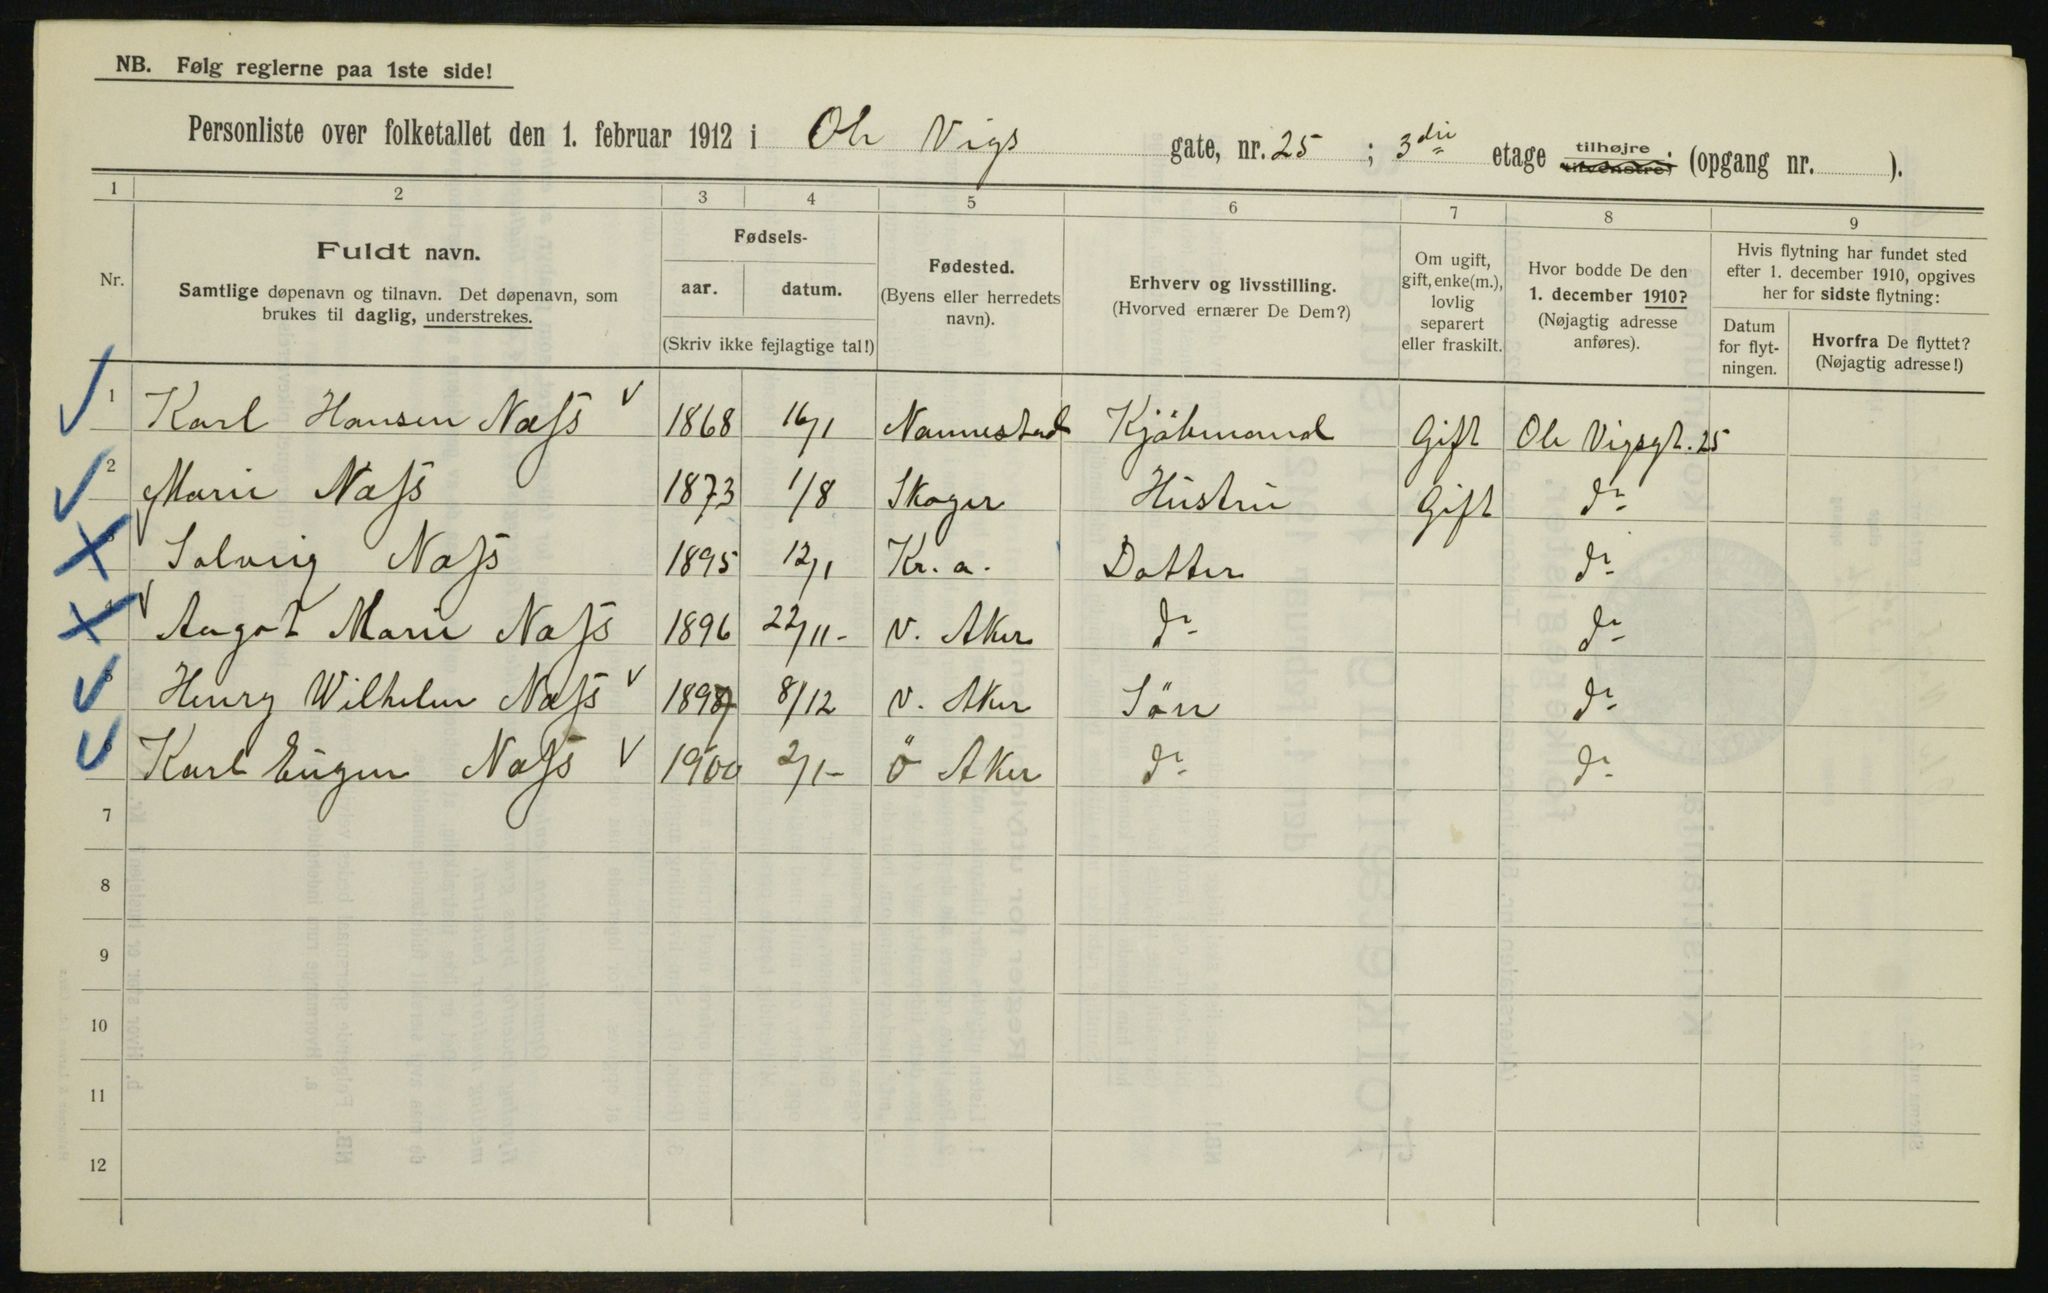 NB. Følg reglerne paa 1ste side!
Personliste over folketallet den 1. februar 1912 i Ole Vigs gate, nr. 25 ; 3die etage tilhøjre tilvenstre; (opgang nr. ).
1 2 3 4 5 6 7 8 9
Nr.
Fuldt navn.
Samtlige døpenavn og tilnavn. Det døpenavn, som
brukes til daglig, understrekes.
Fødsels-
aar. datum.
(Skriv ikke fejlagtige tal!)
Fødested.
(Byens eller herredets
navn).
Erhverv og livsstilling.
(Hvorved ernærer De Dem?)
Om ugift,
gift, enke(m.),
lovlig
separert
eller fraskilt.
Hvor bodde De den
1. december 1910?
(Nøjagtig adresse
anføres).
Hvis flytning har fundet sted
efter 1. december 1910, opgives
her for sidste flytning:
Datum
for flyt-
ningen.
Hvorfra De flyttet?
(Nøjagtig adresse!)
1 Karl Hansen Næss 1868 16/1 Nannestad Kjöbmand Gift Ole Vigsgt. 25
2 Marie Næss 1873 1/8 Skoger Hustru Gift do
3 Solveig Næss 1895 12/1 Kr. a. Datter do
4 Aagot Marie Næss 1896 22/11- V. Aker do do
5 Henry Wilhelm Næss 1897 8/12 V. Aker Sön do
6 Karl Eugen Næss 1900 2/1- Ö Aker do do
7
8
9
10
11
12